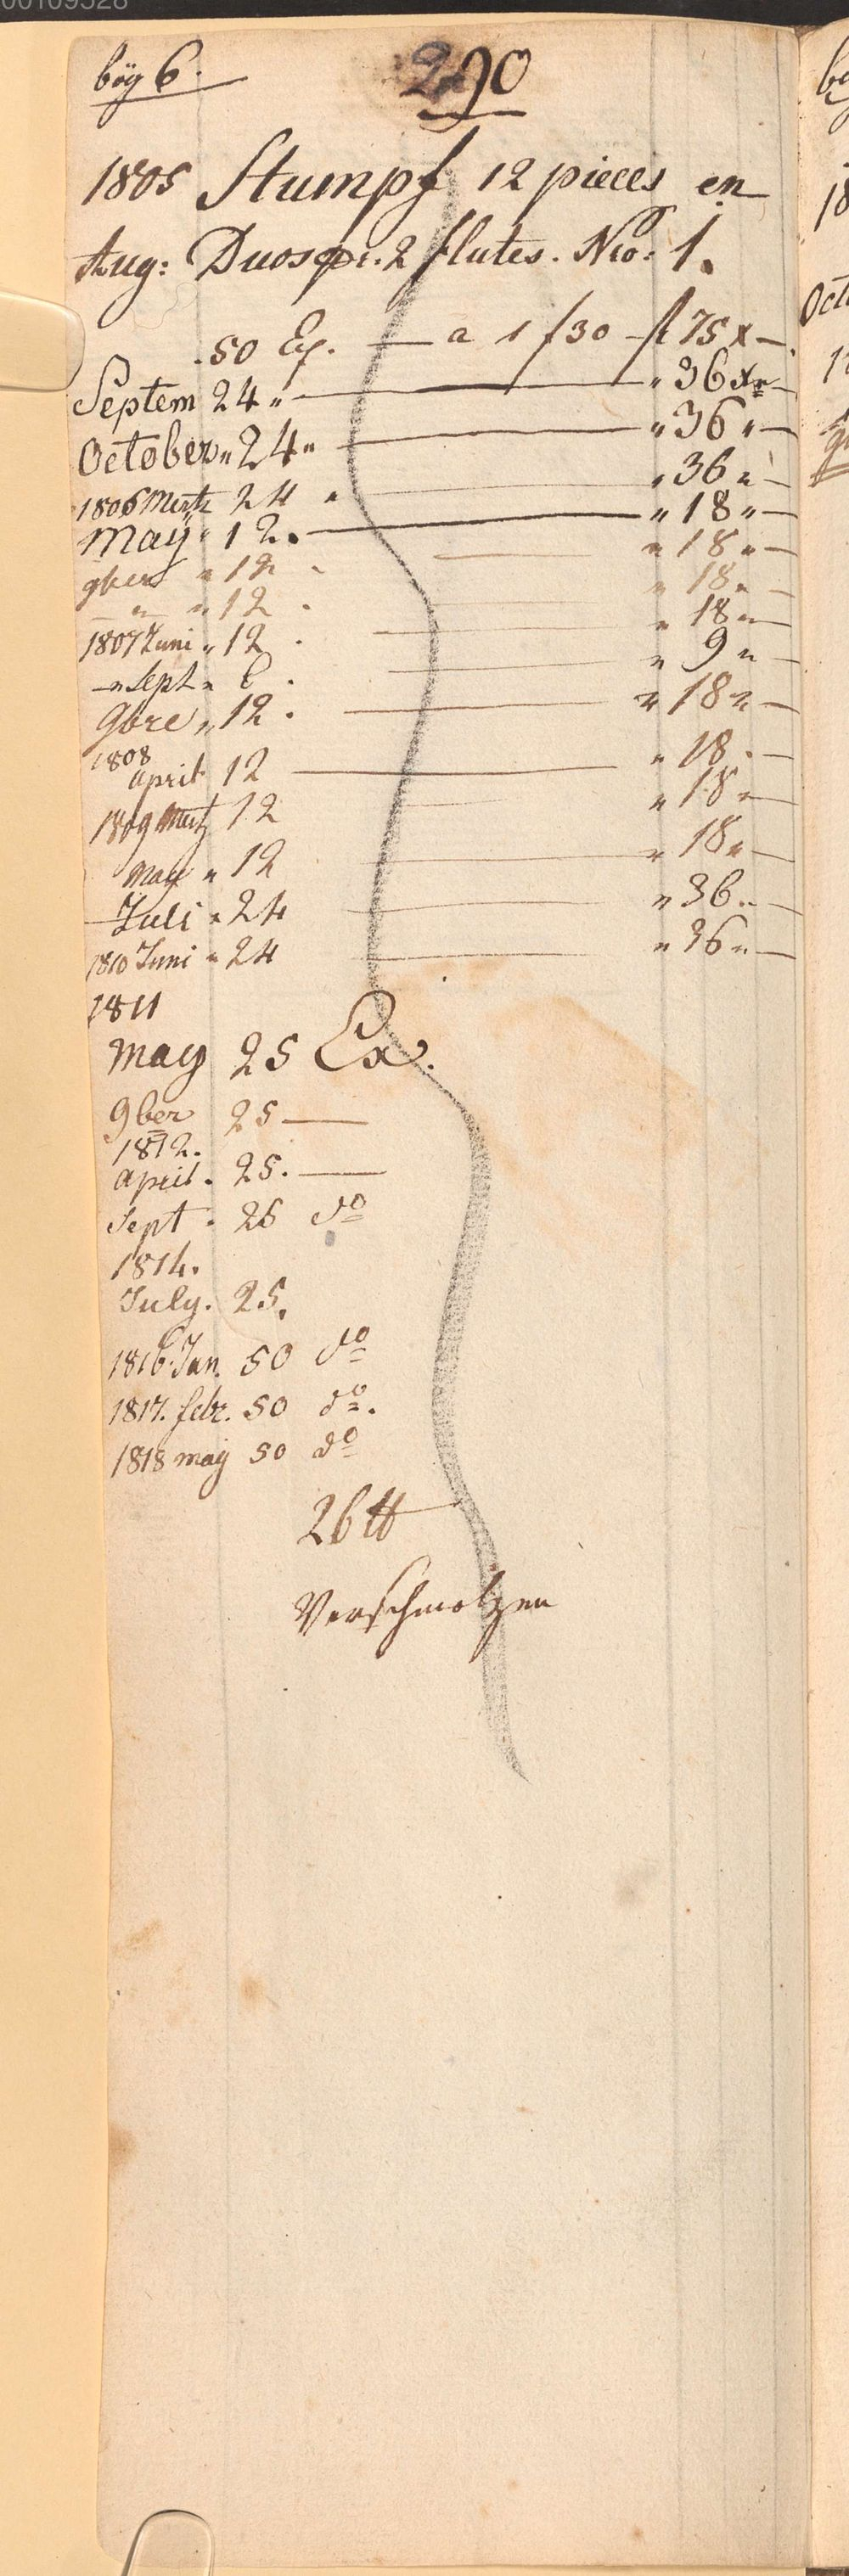 00109528
bög 6. 290
1805 Stumpf 12 pieces en
Aug: Duos pr. 2 flutes. Nro: 1.
50 Ex. — a 1 f 30 — fl 75 x —
Septem 24 „ — „ 36 xr —
October „ 24 „ — „ 36 „ —
1806 Mertz 24 „ — „ 36 „ —
May „ 12. — „ 18 „ —
9ber „ 12 — „ 18 „ —
— „ — „ 12 . — „ 18 „ —
1807 Juni „ 12 . — „ 18 „ —
— „ Sept „ 6 . — „ 9 „ —
9bre „ 12 . — „ 18 „ —
1808
april 12 — „ 18 . —
1809 Mertz 12 — „ 18 „ —
May „ 12 — „ 18 „ —
— Juli „ 24 — „ 36 „ —
1810 Juni „ 24 — „ 36 „ —
1811
may 25 Ex.
9ber 25 —
1812.
april . 25. —
Sept . 26 do
1814.
July. 25.
1816. Jan. 50 do
1817. febr. 50 do.
1818 maÿ 50 do
26 ℔
Verschmolzen
Oct